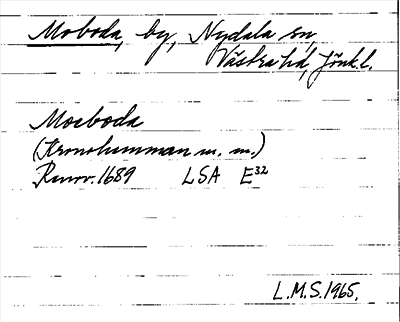 Moboda, by, Nydala sn,
Västra hd, Jönk.l.
Moeboda
(Kronohemman m. m.)
Renov. 1689 LSA E32
L.M.S. 1965.